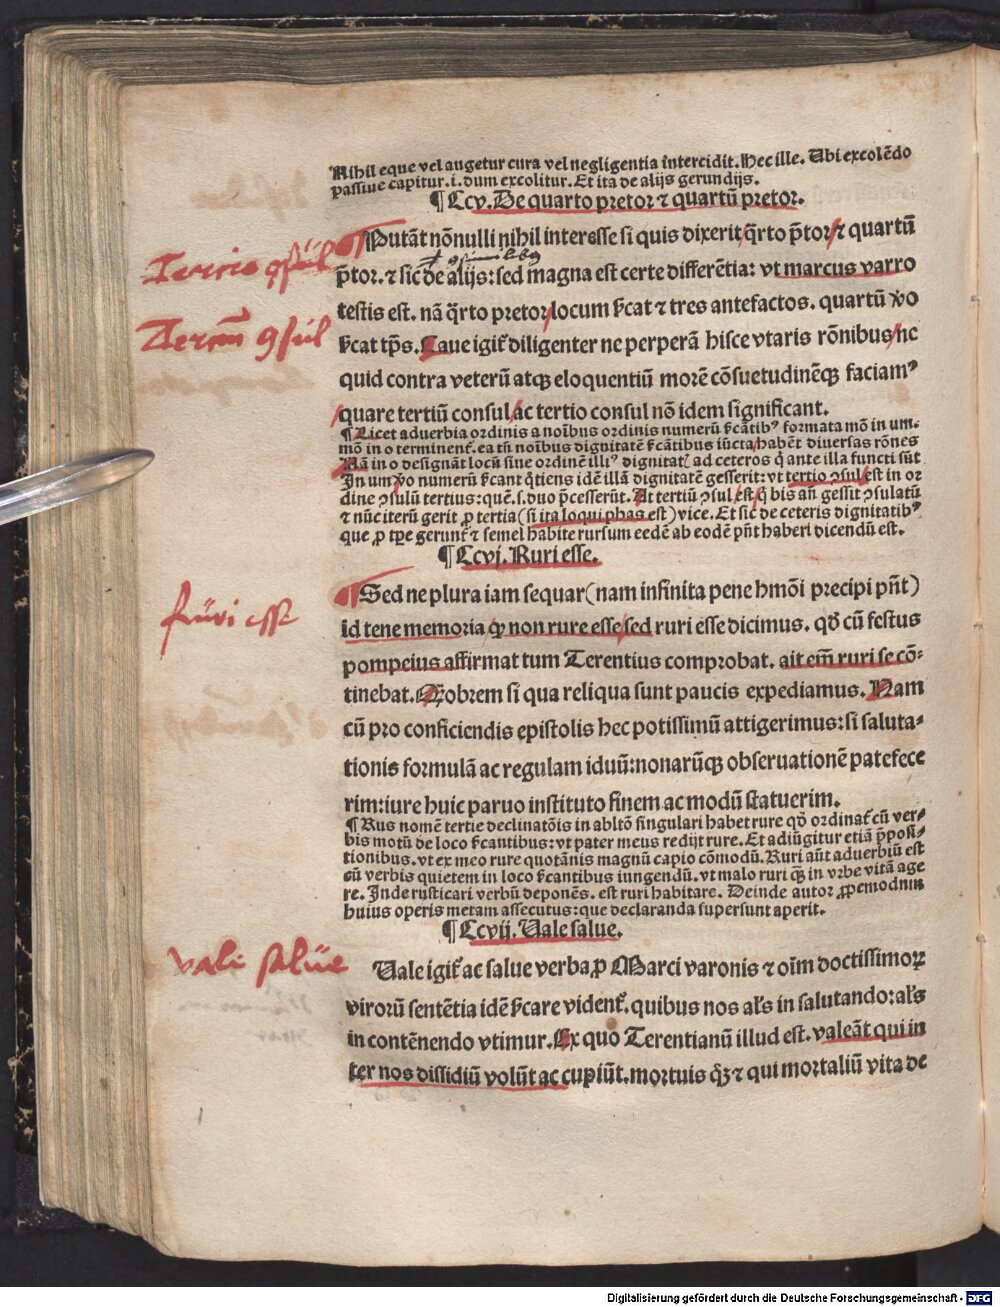 Nihil eque vel augetur cura vel negligentia intercidit. Hec ille. Ubi excolēdo
passiue capitur .i. dum excolitur. Et ita de alijs gerundijs.
¶ Ccv. De quarto pretor ⁊ quartū pretor.
¶ Putāt nōnulli nihil interesse si quis dixerit q̄rto p̄tor ⁊ quartū
⁊ ꝯsimilibꝰ
Tercio ꝯsul
p̄tor. ⁊ sic de alijs: sed magna est certe differētia: vt marcus varro
testis est. nā q̄rto pretor locum ſc̄at ⁊ tres antefactos. quartū v̄o
Terciū ꝯsul
ſc̄at tp̄s. Caue igit̄ diligenter ne perperā hisce vtaris rōnibus nc
quid contra veterū atqꝫ eloquentiū morē cōsuetudinēqꝫ faciamꝰ
quare tertiū consul ac tertio consul nō idem significant.
¶ Licet aduerbia ordinis a noībus ordinis numerū ſc̄ātibꝰ formata mō in um.
mō in o terminent̄. ea tn̄ noībus dignitatē ſc̄ātibus iūcta habēt diuersas rōnes
Nā in o designāt locū siue ordinē illiꝰ dignitat̄ ad ceteros q̄ ante illa functi sūt
In um v̄o numerū ſc̄ant q̄tiens idē illā dignitatē gesserit: vt tertio ꝯsul est in or
dine ꝯsulū tertius: quē .s. duo p̄cesserūt. At tertiū ꝯsul est q̄ bis an̄ gessit ꝯsulatū
⁊ nūc iterū gerit ꝓ tertia (si ita loqui phas est) vice. Et sic de ceteris dignitatibꝰ
que ꝓ tp̄e gerunt̄ ⁊ semel habite rursum eedē ab eodē pn̄t haberi dicendū est.
¶ Ccvj. Ruri esse.
¶ Sed ne plura iam sequar (nam infinita pene hmōi precipi pn̄t)
Ruri esse
id tene memoria qꝫ non rure esse sed ruri esse dicimus. qd̄ cū festus
pompeius affirmat tum Terentius comprobat. ait em̄ ruri se cō⸗
tinebat. Qobrem si qua reliqua sunt paucis expediamus. Nam
cū pro conficiendis epistolis hec potissimū attigerimus: si saluta⸗
tionis formulā ac regulam iduū: nonarūqꝫ obseruationē patefece
rim: iure huic paruo instituto finem ac modū statuerim.
¶ Rus nomē tertie declinatōis in abltō singulari habet rure qd̄ ordinat̄ cū ver⸗
bis motū de loco ſc̄antibus: vt pater meus redijt rure. Et adiūgitur etiā p̄posi⸗
tionibus. vt ex meo rure quotānis magnū capio cōmodū. Ruri aūt aduerbiū est
cū verbis quietem in loco ſc̄antibus iungendū. vt malo ruri qꝫ in vrbe vitā age
re. Inde rusticari verbū deponēs. est ruri habitare. Deinde autor ꝓpemodum
huius operis metam assecutus: que declaranda supersunt aperit.
¶ Ccvij. Vale salue.
vale salue
Vale igit̄ ac salue verba ꝓ Marci varonis ⁊ oīm doctissimoꝝ
virorū sentētia idē ſc̄are vident̄. quibus nos al̄s in salutando: al̄s
in contēnendo vtimur. Ex quo Terentianū illud est. valeāt qui in
ter nos dissidiū volūt ac cupiūt. mortuis qꝫ ⁊ qui mortaliū vita de
Digitalisierung gefördert durch die Deutsche Forschungsgemeinschaft - DFG